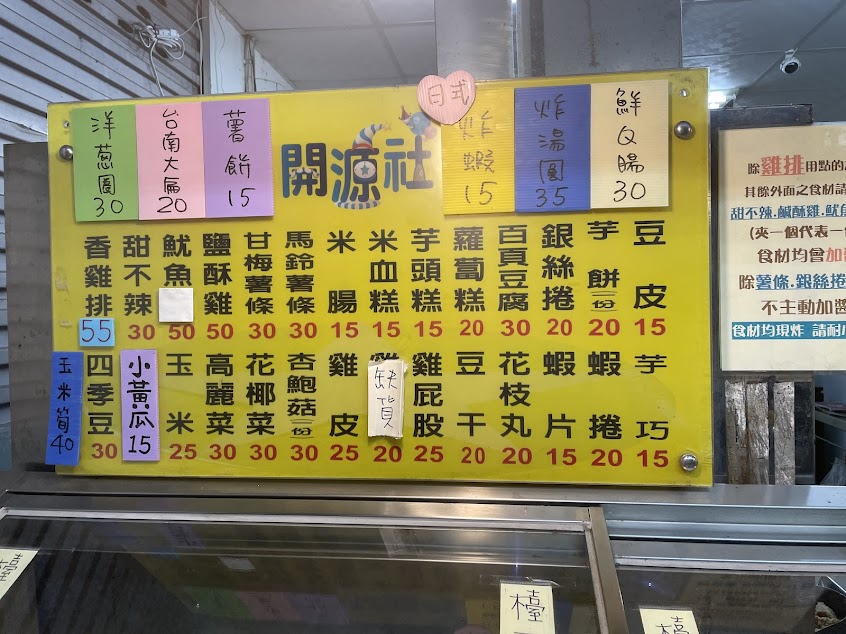 洋蔥圈30
台南大扁20
薯餅15
開源社
日式
炸蝦15
炸湯圓35
鮮Q腸30
香雞排55
甜不辣30
魷魚50
鹽酥雞50
甘梅薯條30
馬鈴薯條30
米腸15
米血糕15
芋頭糕15
蘿蔔糕20
百頁豆腐30
銀絲捲20
芋餅一份20
豆皮15
玉米筍40
四季豆30
小黃瓜15
玉米25
高麗菜30
花椰菜30
杏鮑菇一份30
雞皮25
缺貨
20
雞屁股25
豆干20
花枝丸20
蝦片15
蝦捲20
芋巧15
除雞排用點的
其餘外面之食材請
甜不辣.鹹酥雞.魷魚
(夾一個代表一
食材均會加
除薯條.銀絲捲
不主動加醬
食材均現炸 請耐
檯